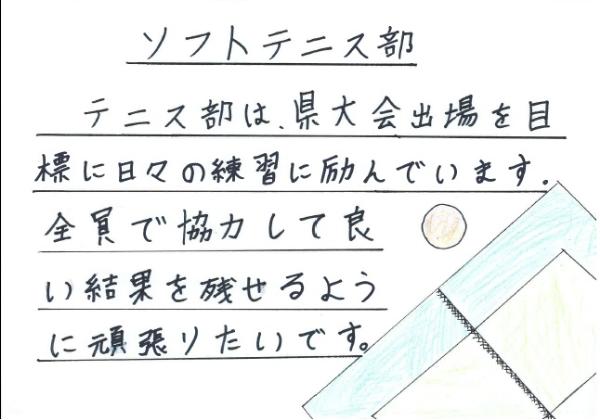 ソフトテニス部
テニス部は、県大会出場を目
標に日々の練習に励んでいます.
全員で協力して良
い結果を残せるよう
に頑張りたいです。